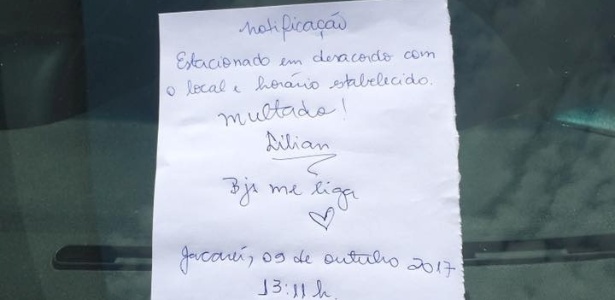 Notificação
Estacionado em desacordo com
o local e horário estabelecido.
Multado!
Lilian
Bjs me liga
Jacareí, 09 de outubro 2017
13:11 h.